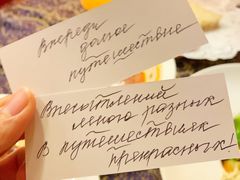 Впереди
долгое
путешествие
Впечатлений
много разных
В путешествиях
прекрасных!